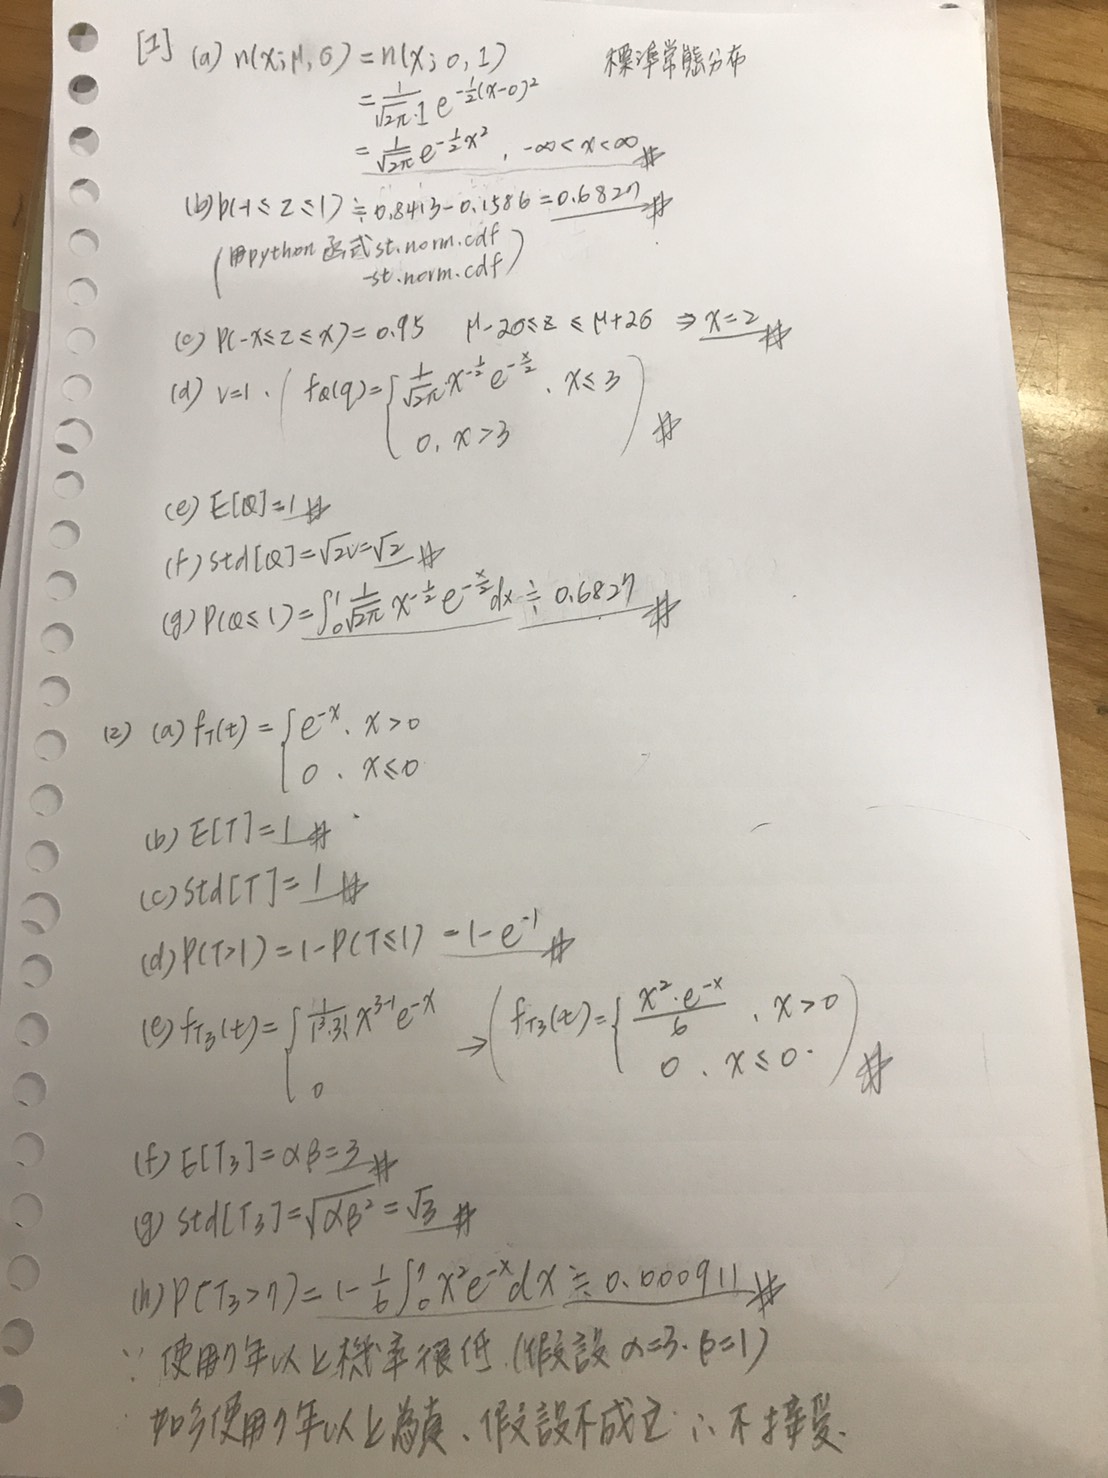 [1] (a) n(x; μ, σ) = n(x; 0, 1) 標準常態分布
= 1/(√2π·1) e^(-1/2(x-0)²)
= 1/√2π e^(-1/2 x²) , -∞ < x < ∞ #
(b) p(-1 ≤ z ≤ 1) ≑ 0.8413 - 0.1586 = 0.6827 #
(用python函式 st.norm.cdf
-st.norm.cdf)
(c) P(-x ≤ z ≤ x) = 0.95 μ-2σ ≤ z ≤ μ+2σ ⇒ x=2 #
(d) v=1 . ( f_Q(q) = { 1/√2π x^(-1/2) e^(-x/2) 、 x ≤ 3
0. x > 3 ) #
(e) E[Q] = 1 #
(f) std[Q] = √2v = √2 #
(g) P(Q ≤ 1) = ∫₀¹ 1/√2π x^(-1/2) e^(-x/2) dx ≑ 0.6827 #
(2) (a) f_T(t) = { e^(-x) 、 x > 0
0 、 x ≤ 0
(b) E[T] = 1 #
(c) Std[T] = 1 #
(d) P(T>1) = 1 - P(T ≤ 1) = 1 - e^(-1) #
(e) f_T₃(t) = { 1/(1³·3!) x^(3-1) e^(-x) → ( f_T₃(t) = { x²·e^(-x)/6 、 x > 0
0 0 、 x ≤ 0. ) #
(f) E[T₃] = αβ = 3 #
(g) std[T₃] = √αβ² = √3 #
(h) P(T₃ > 7) = 1 - 1/6 ∫₀⁷ x² e^(-x) dx ≑ 0.000911 #
∵ 使用7年以上機率很低 (假設 α=3. β=1)
如多使用7年以上為真、假設不成立 ∴ 不接受.